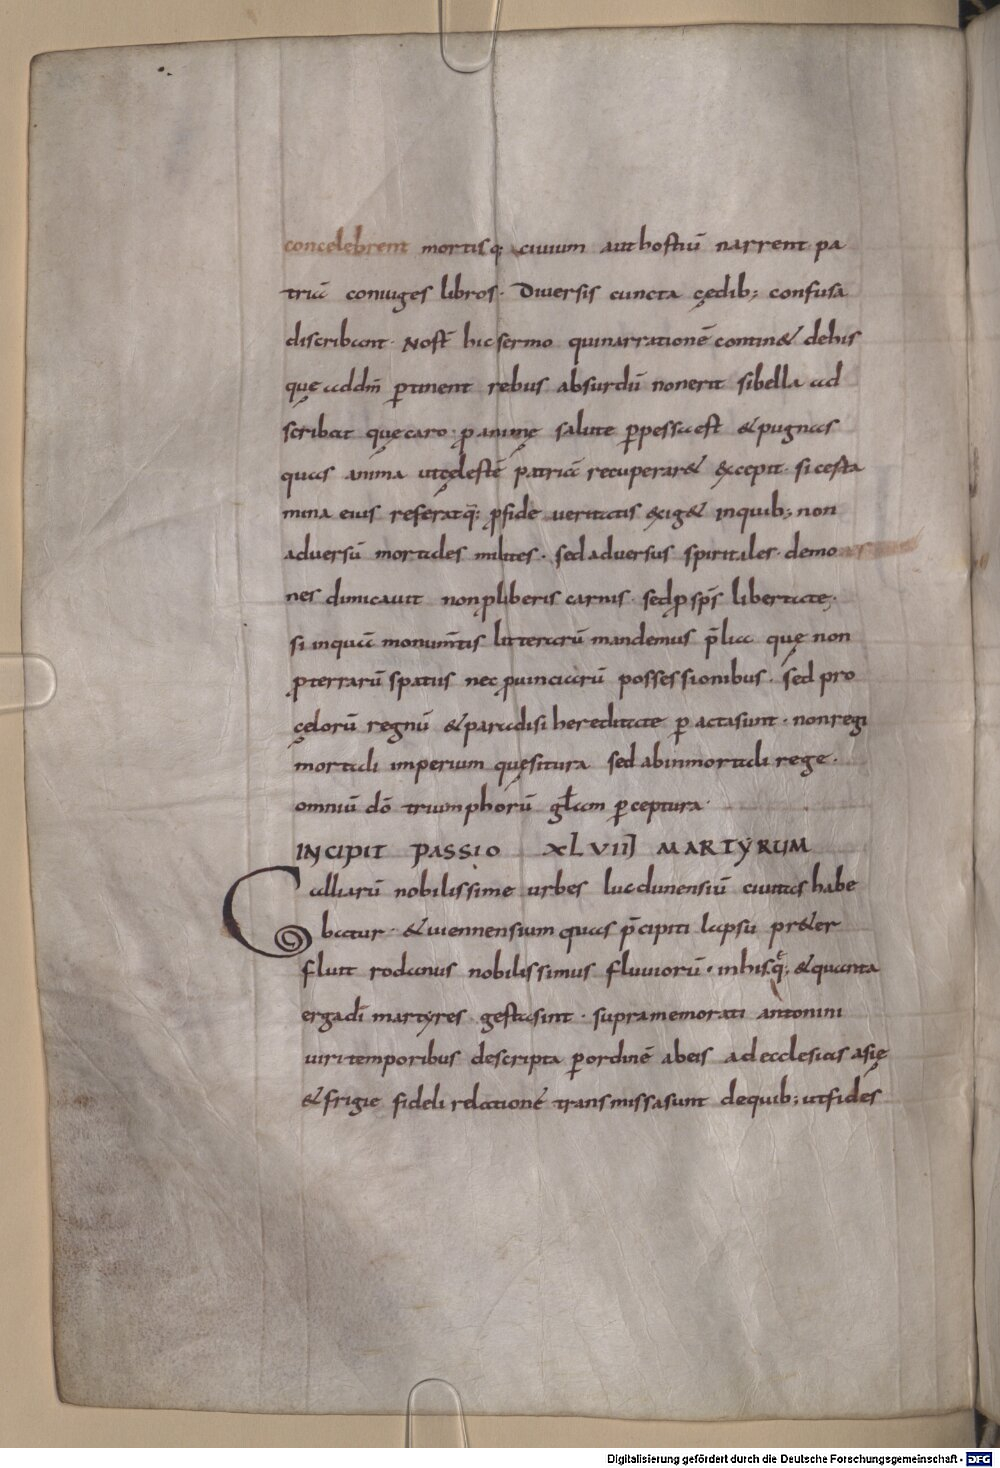 concelebrent mortisq; ciuium aut hostiū narrent pa
triā coniuges libros. Diuersis cuncta cędib; confusa
discribant. Nost̄ hic sermo qui narrationē contin& de his
quę ad dm̄ ꝑtinent rebus absurdū non erit si bella ad
scribat quę caro ꝓ animę salute ꝑpessa est & pugnas
quas anima ut cęlestē patriā recuperar& excepit. si certa
mina eius referat q̄: ꝓ fide ueritatis exig& in quib; non
aduersū mortales milites. sed aduersus spiritales demo
nes dimicauit non ꝓ liberis carnis. sed ꝓ sp̄s libertate;
si inquā monum̄tis litterarū mandemus p̄lia quę non
ꝓ terrarū spatiis nec ꝓuinciarū possessionibus. sed pro
cęlorū regnū & paradisi hereditate ꝑ acta sunt. non regi
mortali imperium quęsitura sed ab inmortali rege.
omniū dō triumphorū gl̄am ꝑceptura.
INCIPIT PASSIO XLVIII MARTYRUM
Galliarū nobilissime urbes lucdunensiū ciuitas habe
batur. & uiennensium quas p̄cipiti lapsu pr&er
fluit rodanus nobilissimus fluuiorū. in hisq; & quanta
erga di martyres gesta sint. supra memorati antonini
uiri temporibus descripta ꝑ ordinē ab eis ad ecclesias asię
& frigie fideli relationē transmissa sunt de quib; ut fides
Digitalisierung gefördert durch die Deutsche Forschungsgemeinschaft - DFG